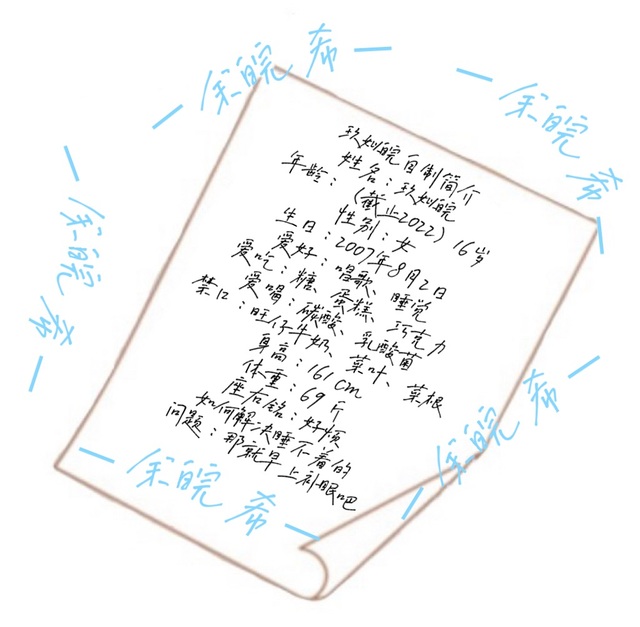 玖灿皖自制简介
姓名：玖灿皖
年龄：（截止2022）16岁
性别：女
生日：2007年8月2日
爱好：唱歌、睡觉
爱吃：糖、蛋糕、巧克力
爱喝：碳酸、乳酸菌
禁口：旺仔牛奶、菜叶、菜根
身高：161cm
体重：69斤
座右铭：好烦
如何解决睡不着的
问题：那就早上补眠吧
—余皖希—
—余皖希—
—余皖希—
—余皖希—
—余皖希—